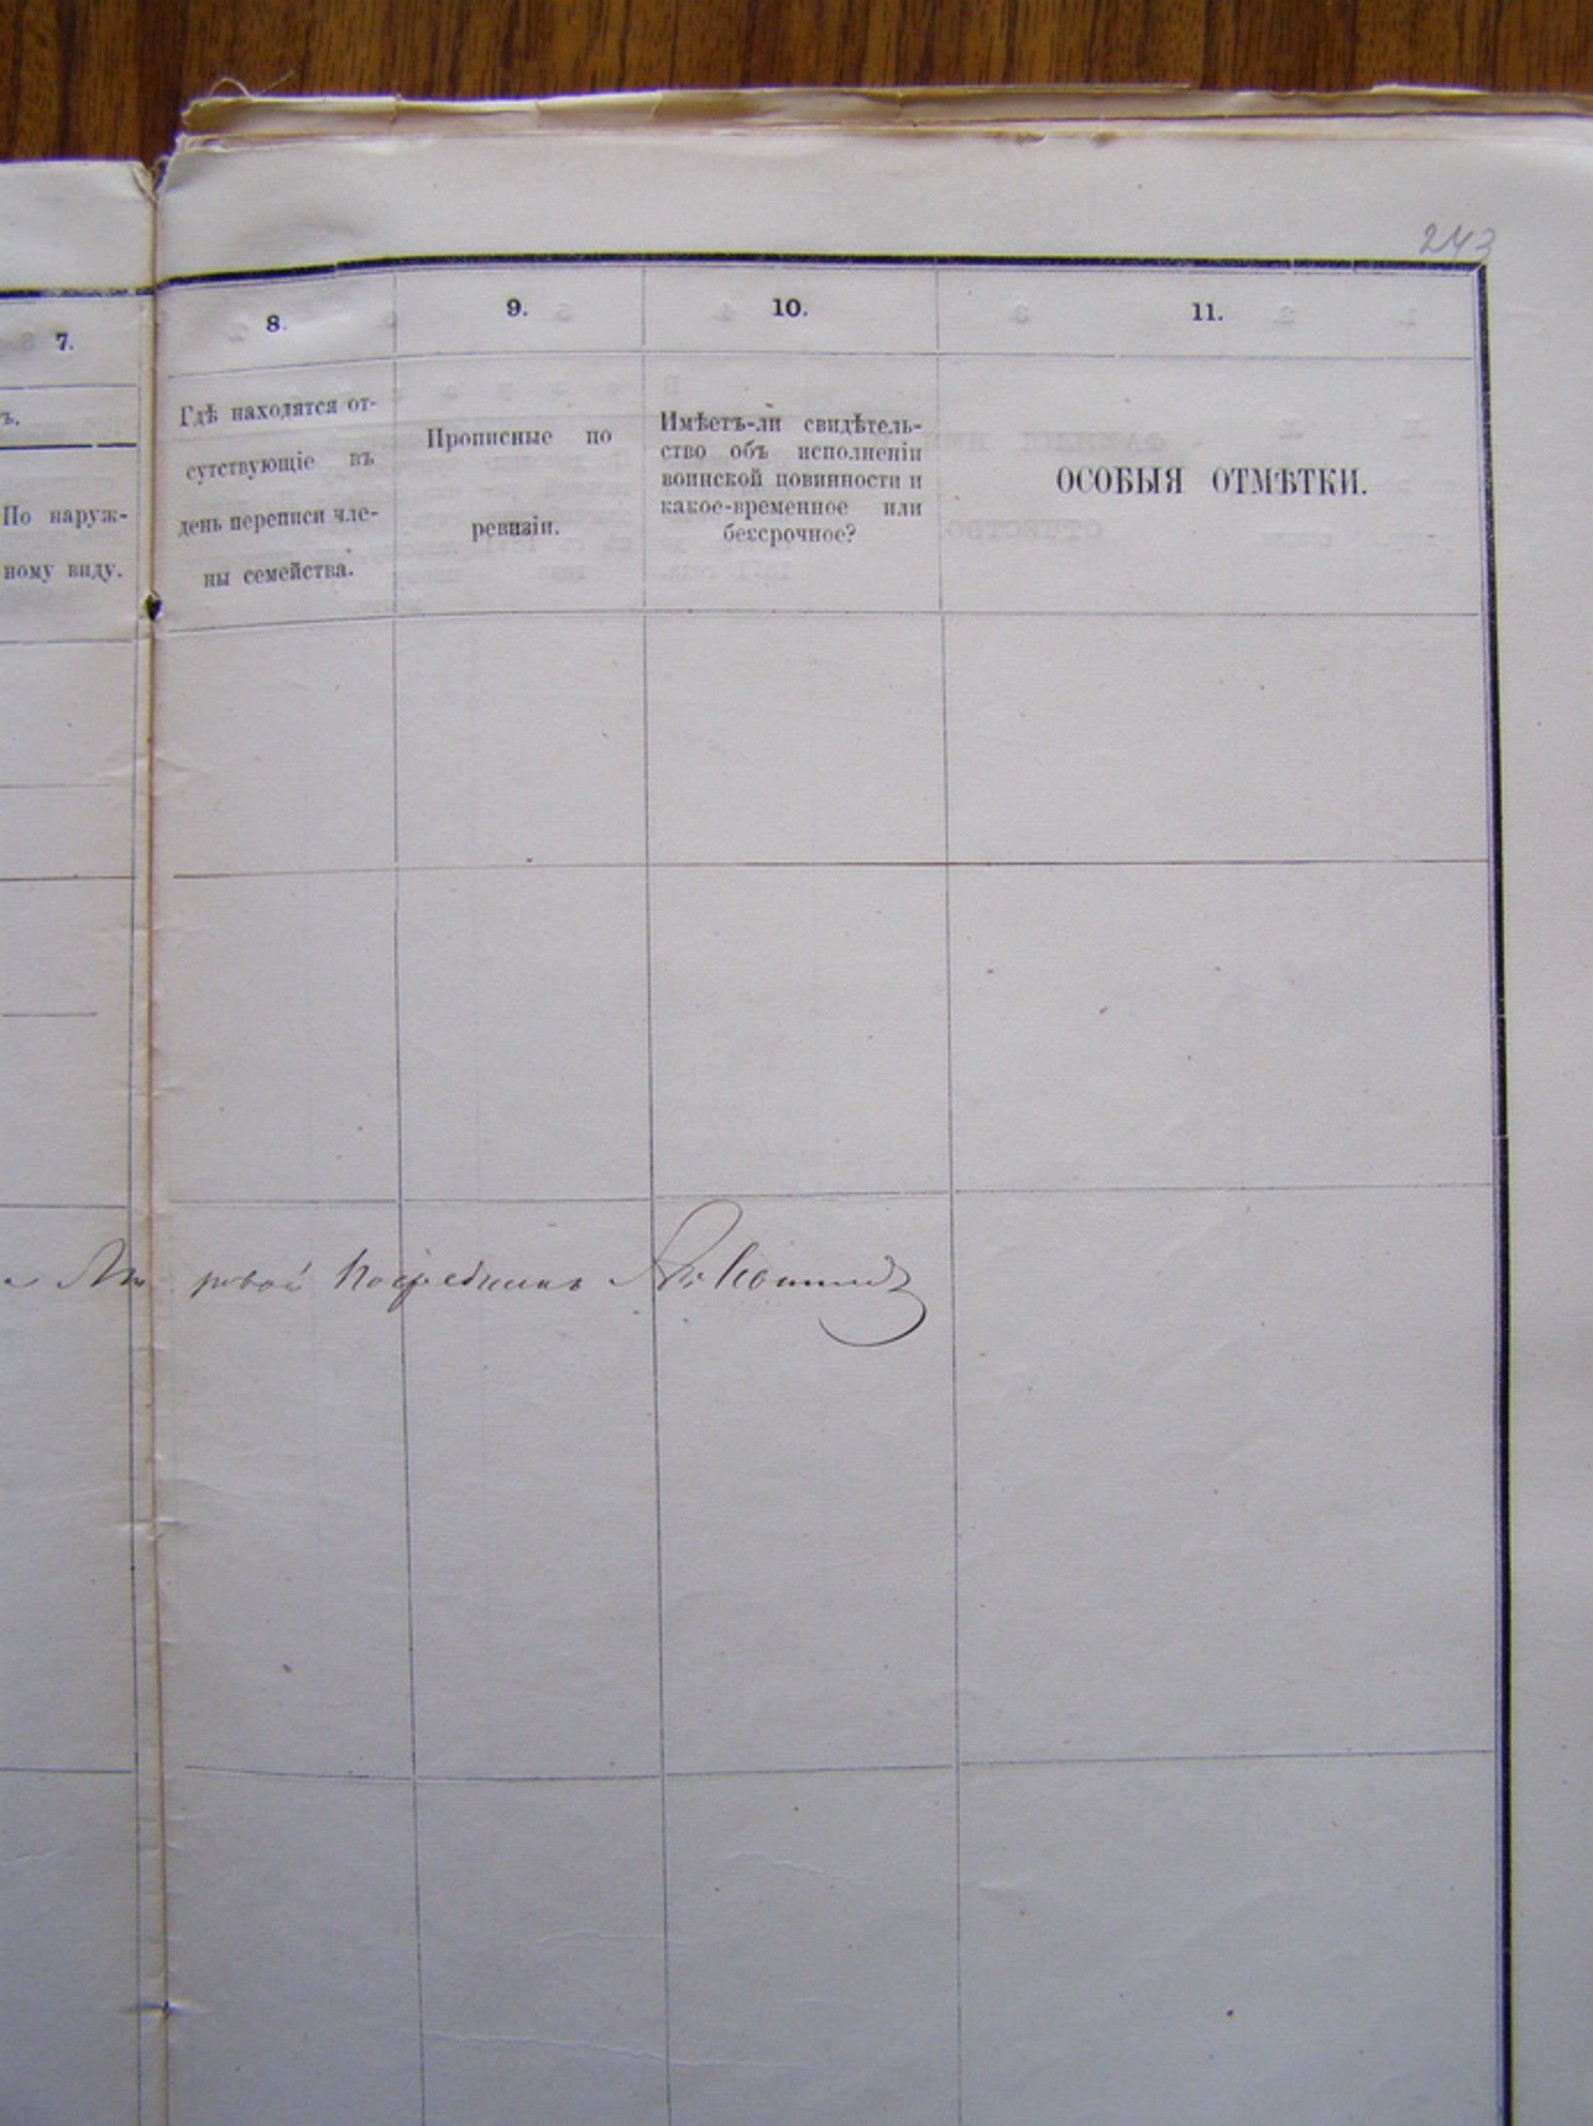 243
7.
ъ.
По наруж-
ному виду.
8.
Гдѣ находятся от-
сутствующіе въ
день переписи чле-
ны семейства.
9.
Прописные по
ревизіи.
10.
Имѣетъ-ли свидѣтель-
ство объ исполненіи
воинской повинности и
какое-временное или
бессрочное?
11.
ОСОБЫЯ ОТМѢТКИ.
Мировой Посредникъ